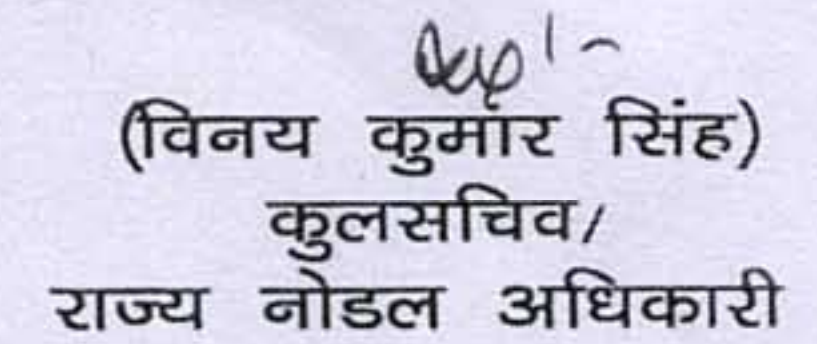 (विनय कुमार सिंह)
कुलसचिव/
राज्य नोडल अधिकारी